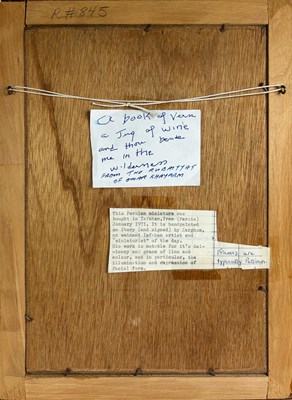 R#845
a book of Verse
a Jug of wine
and thou beside
me in the
wilderness
FROM THE RUBAIYAT
OF OMAR KHAYYAM
This Persian miniature was
bought in Isfahan, Iran (Persia)
January 1971. It is handpainted
on Ivory (and signed) by
an eminent Isfahan artist and
"miniaturist" of the day.
His work is notable for it's del-
icacy and grace of line and
colour, and in particular, the
illumination and expression of
facial form.
are
typically Persian